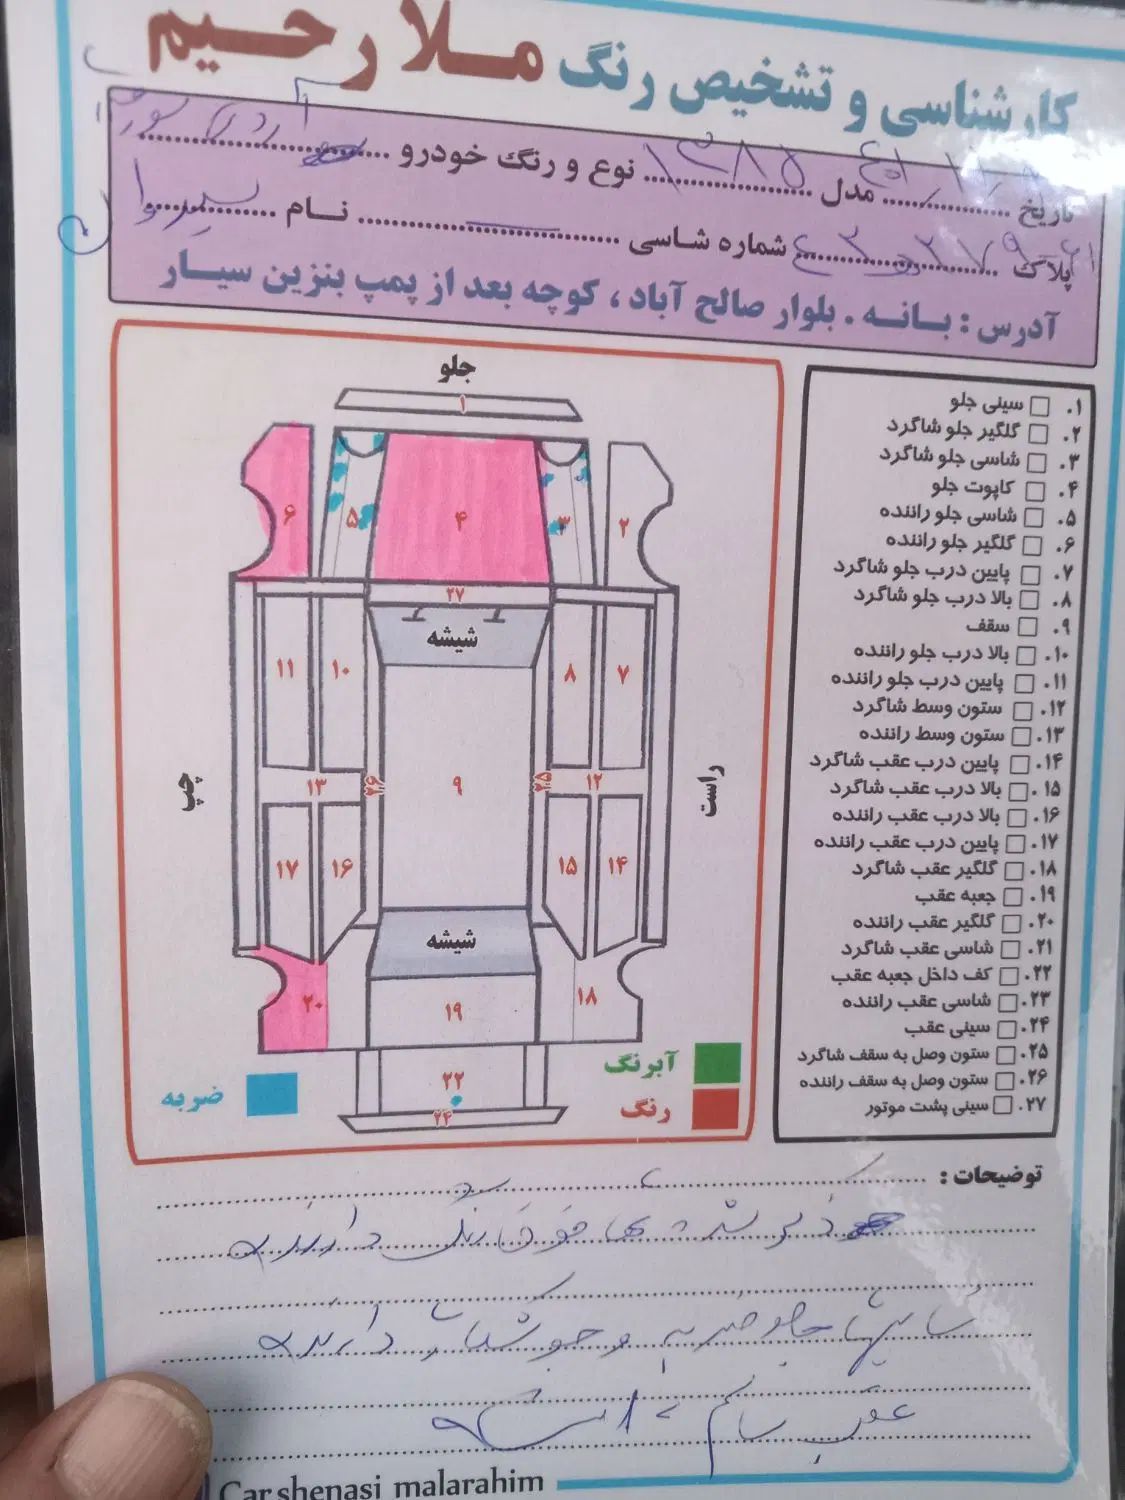 کارشناسی و تشخیص رنگ ملا رحیم
تاریخ مدل ۱۳۸۵ نوع و رنگ خودرو
پلاک شماره شاسی نام
آدرس : بانه . بلوار صالح آباد ، کوچه بعد از پمپ بنزین سیار
جلو
۱
۶
۵
۴
۳
۲
۲۷
شیشه
۱۱
۱۰
۸
۷
چپ
۱۳
۲۶
۹
۲۵
۱۲
راست
۱۷
۱۶
۱۵
۱۴
شیشه
۲۰
۱۹
۱۸
۲۲
۲۴
آبرنگ
رنگ
ضربه
۱. سینی جلو
۲. گلگیر جلو شاگرد
۳. شاسی جلو شاگرد
۴. کاپوت جلو
۵. شاسی جلو راننده
۶. گلگیر جلو راننده
۷. پایین درب جلو شاگرد
۸. بالا درب جلو شاگرد
۹. سقف
۱۰. بالا درب جلو راننده
۱۱. پایین درب جلو راننده
۱۲. ستون وسط شاگرد
۱۳. ستون وسط راننده
۱۴. پایین درب عقب شاگرد
۱۵. بالا درب عقب شاگرد
۱۶. بالا درب عقب راننده
۱۷. پایین درب عقب راننده
۱۸. گلگیر عقب شاگرد
۱۹. جعبه عقب
۲۰. گلگیر عقب راننده
۲۱. شاسی عقب شاگرد
۲۲. کف داخل جعبه عقب
۲۳. شاسی عقب راننده
۲۴. سینی عقب
۲۵. ستون وصل به سقف شاگرد
۲۶. ستون وصل به سقف راننده
۲۷. سینی پشت موتور
توضیحات :
فوق رنگ دارند
جلو ضربه و جوشکاری دارند
عقب سالم است
Car shenasi malarahim